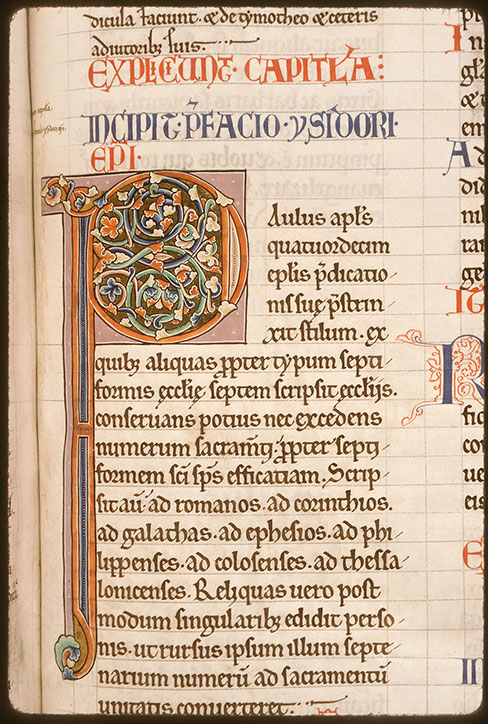 dicula faciunt. & de tymotheo & ceteris
adiutorib; suis.
EXPLICIUNT. CAPITLA:
INCIPIT. P̄FACIO. YSIDORI.
EPI.
PAulus apl̄s
quatuordecim
ep̄lis p̄dicatio
nis suę p̄strin
xit stilum. ex
quib; aliquas ꝓpter typum septi
formis ęcclię septem scripsit ęcclijs.
conseruans potius nec excedens
numerum sacram̄ti. ꝓpter septi
formem sc̄i sp̄s efficatiam. Scrip
sit aū ad romanos. ad corinthios.
ad galathas. ad ephesios. ad phi
lippenses. ad colosenses. ad thessa
lonicenses. Reliquas uero post
modum singularib; edidit perso
nis. ut rursus ipsum illum septe
narium numerū ad sacramentū
unitatis conuerteret.